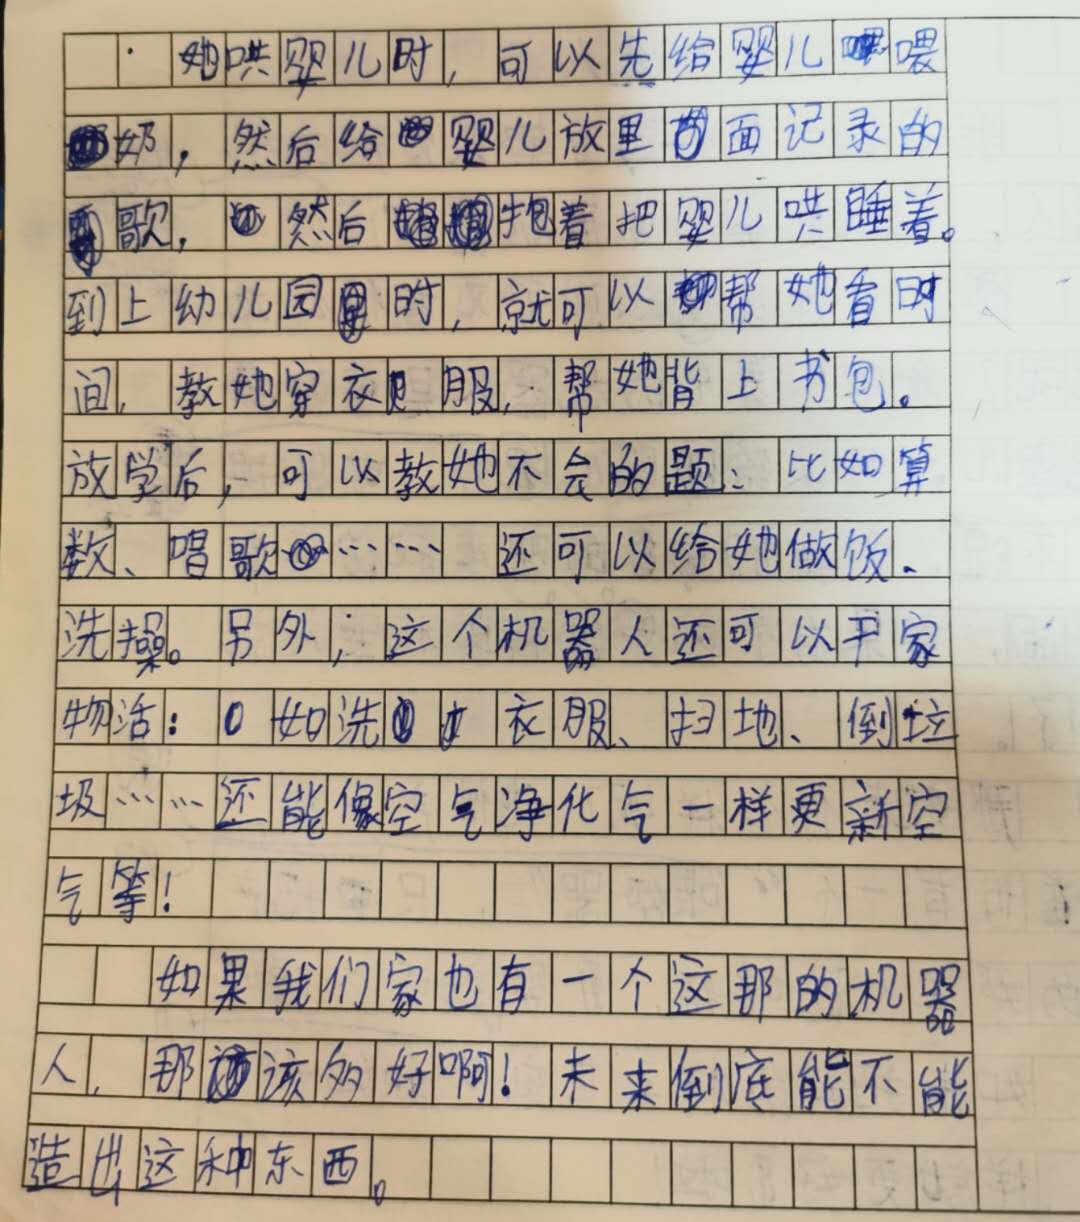 她哄婴儿时,可以先给婴儿喂
奶,然后给婴儿放里面记录的
歌,然后抱着把婴儿哄睡着。
到上幼儿园时,就可以帮她看时
间,教她穿衣服,帮她背上书包。
放学后,可以教她不会的题:比如算
数、唱歌……还可以给她做饭、
洗操。另外,这个机器人还可以干家
物活:如洗衣服、扫地、倒垃
圾……还能像空气净化气一样更新空
气等!
如果我们家也有一个这那的机器
人,那该多好啊!未来倒底能不能
造出这种东西。